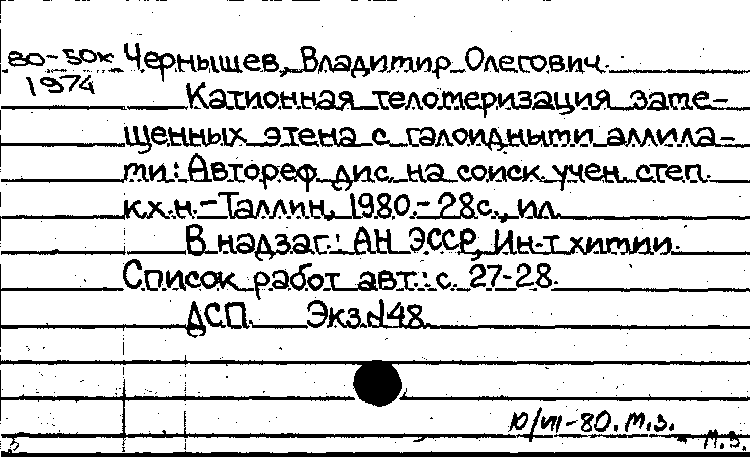 80-50к Чернышев, Владимир Олегович.
1974
Катионная теломеризация заме-
щенных этена с галоидными аллила-
ми: Автореф. дис. на соиск. учен. степ.
к.х.н.-Таллин, 1980.-28с., ил.
В надзаг.: АН ЭССР, Ин-т химии.
Список работ авт.: с. 27-28.
ДСП. Экз.№48.
10/VII-80. М.З.
М.З.